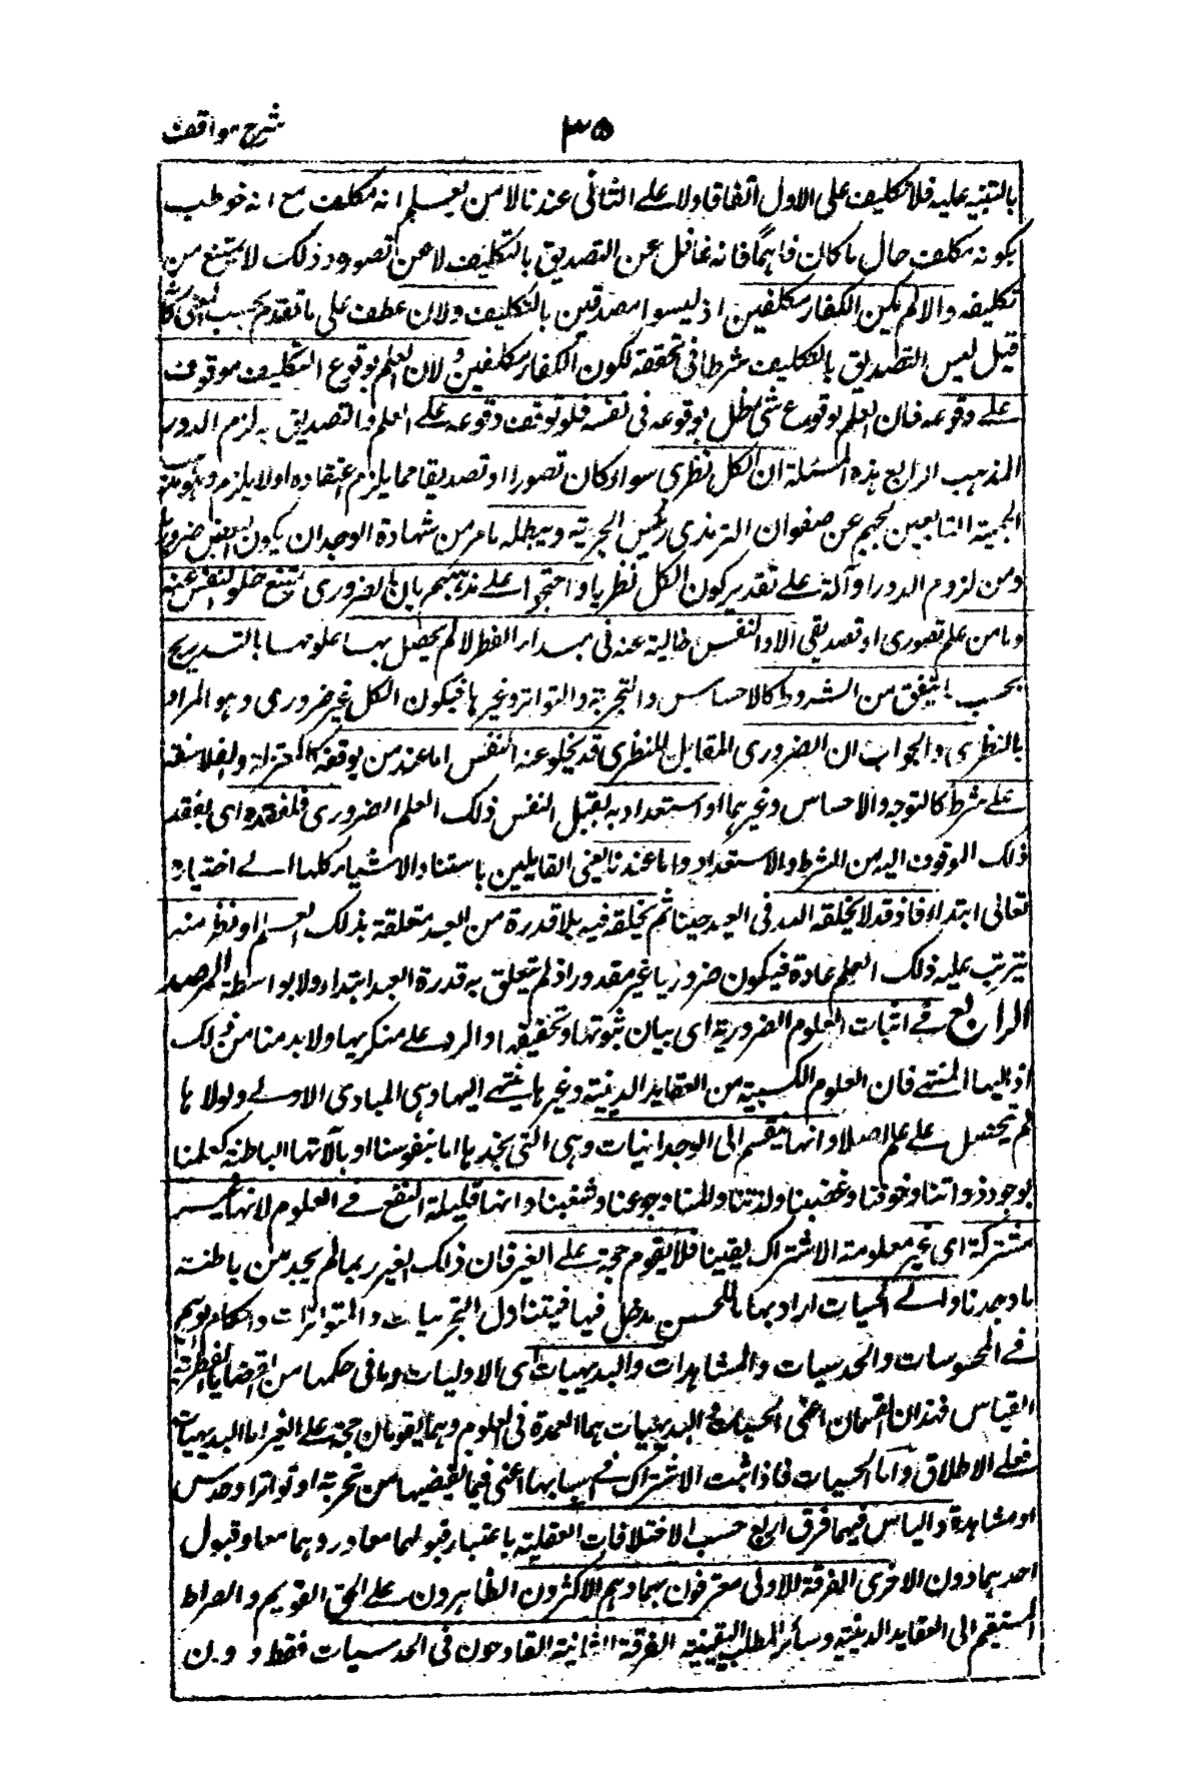 شرح مواقف
٣٥
بالتنبيه عليه فلا تكليف على الاول اتفاقا ولا على الثانى عندنا لا من يعلم انه مكلف مع انه خوطب
بكونه مكلف حال ما كان فاهما فانه غافل عن التصديق بالتكليف لا عن تصوره وذلك لا يمتنع من
تكليفه والا لم يكن الكفار مكلفين اذ ليسوا مصدقين بالتكليف ولان عطف على ما تقدم بحسب المعنى كأنه
قيل ليس التصديق بالتكليف شرطا فى تحققه لكون الكفار مكلفين و لان العلم بوقوع التكليف موقوف
على وقوعه فان العلم بوقوع شئ ظل بوقوعه فى نفسه فلو توقف وقوعه على العلم والتصديق به لزم الدور
المذهب الرابع هذه المسئلة ان الكل نظرى سواء كان تصورا او تصديقا مما يلزم اعتقاده اولا يلزم وهو مذهب
الجهمية التابعين لجهم عن صفوان الترمذى رئيس الجبرية ويبطله ما مر من شهادة الوجدان يكون البعض ضروريا
ومن لزوم الدور او آلة على تقدير كون الكل نظريا واحتجوا على مذهبهم بان الضرورى يمتنع خلو النفس عنه
وما من علم تصورى او تصديقى الا والنفس خالية عنه فى مبداء الفطرة لا لم يحصل بها علومها بالتدريج
بحسب ما يتفق من الشروط كالاحساس والتجربة والتواتر وغيرها فيكون الكل غير ضرورى وهو المراد
بالنظرى والجواب ان الضرورى المقابل للنظرى قد يخلو عنه النفس اما عند من يوقفه كالمعتزلة والفلاسفة
على شرط كالتوجه والاحساس وغيرهما او استعداد به يقبل النفس ذلك العلم الضرورى فلفقده اى بفقد
ذلك الموقوف اليه من الشرط والاستعداد واما عندنا يعنى القايلين باستناد الاشياء كلها الى اختياره
تعالى ابتداء فاذ قد لا يخلقه الله فى العبد حينا ثم يخلقه فيه بلا قدرة من العبد متعلقة بذلك العلم او نظر منه
يترتب عليه ذلك العلم عادة فيكون ضروريا غير مقدور اذ لم يتعلق به قدرة العبد ابتداء ولا بواسطة المرصد
الرابع فى اثبات العلوم الضرورية اى بيان ثبوتها وتحقيقها والرد على منكريها ولا بد منا من ذلك
اذ اليها المنتهى فان العلوم الكسبية من العقايد الدينية وغيرها ينتهى اليها وهى المبادى الاولى ولولاها
لم تحصل على علم اصلا وانها ينقسم الى الوجدانيات وهى التى نجدها اما بنفوسنا او بآلاتها الباطنة كعلمنا
بوجود ذواتنا وخوفنا وغضبنا ولذتنا والمنا وجوعنا وشغبنا وانها قليلة النفع فى العلوم لانها غير
مشتركة اى غير معلومة الاشتراك يقينا فلا يقوم حجة على الغير فان ذلك الغير ربما لم يجد من باطنه
ما وجدنا والى الحسيات اراد بها ما للحس مدخل فيها فيتناول التجربيات والمتواترات واحكام الوهم
فى المحسوسات والحدسيات والمشاهدات والبديهيات اى الاوليات وما فى حكمها من القضايا الفطرية
القياس فهذان القسمان اعنى الحسيات والبديهيات هما العمدة فى العلوم وهما يقومان حجة على الغير اما البديهيات
فعلى الاطلاق واما الحسيات فاذا ثبت الاشتراك فى اسبابها اعنى فيما يقتضيها من تجربة او تواتر او حدس
او مشاهدة والناس فيهما فرق اربع حسب الاختلافات العقلية باعتبار قبولهما معا وردهما معا وقبول
احدهما دون الاخرى الفرقة الاولى معترفون بهما وهم الاكثرون الظاهرون على الحق القويم والصراط
المستقيم الى العقايد الدينية وسائر المطالب اليقينية الفرقة الثانية القادحون فى الحدسيات فقط دون